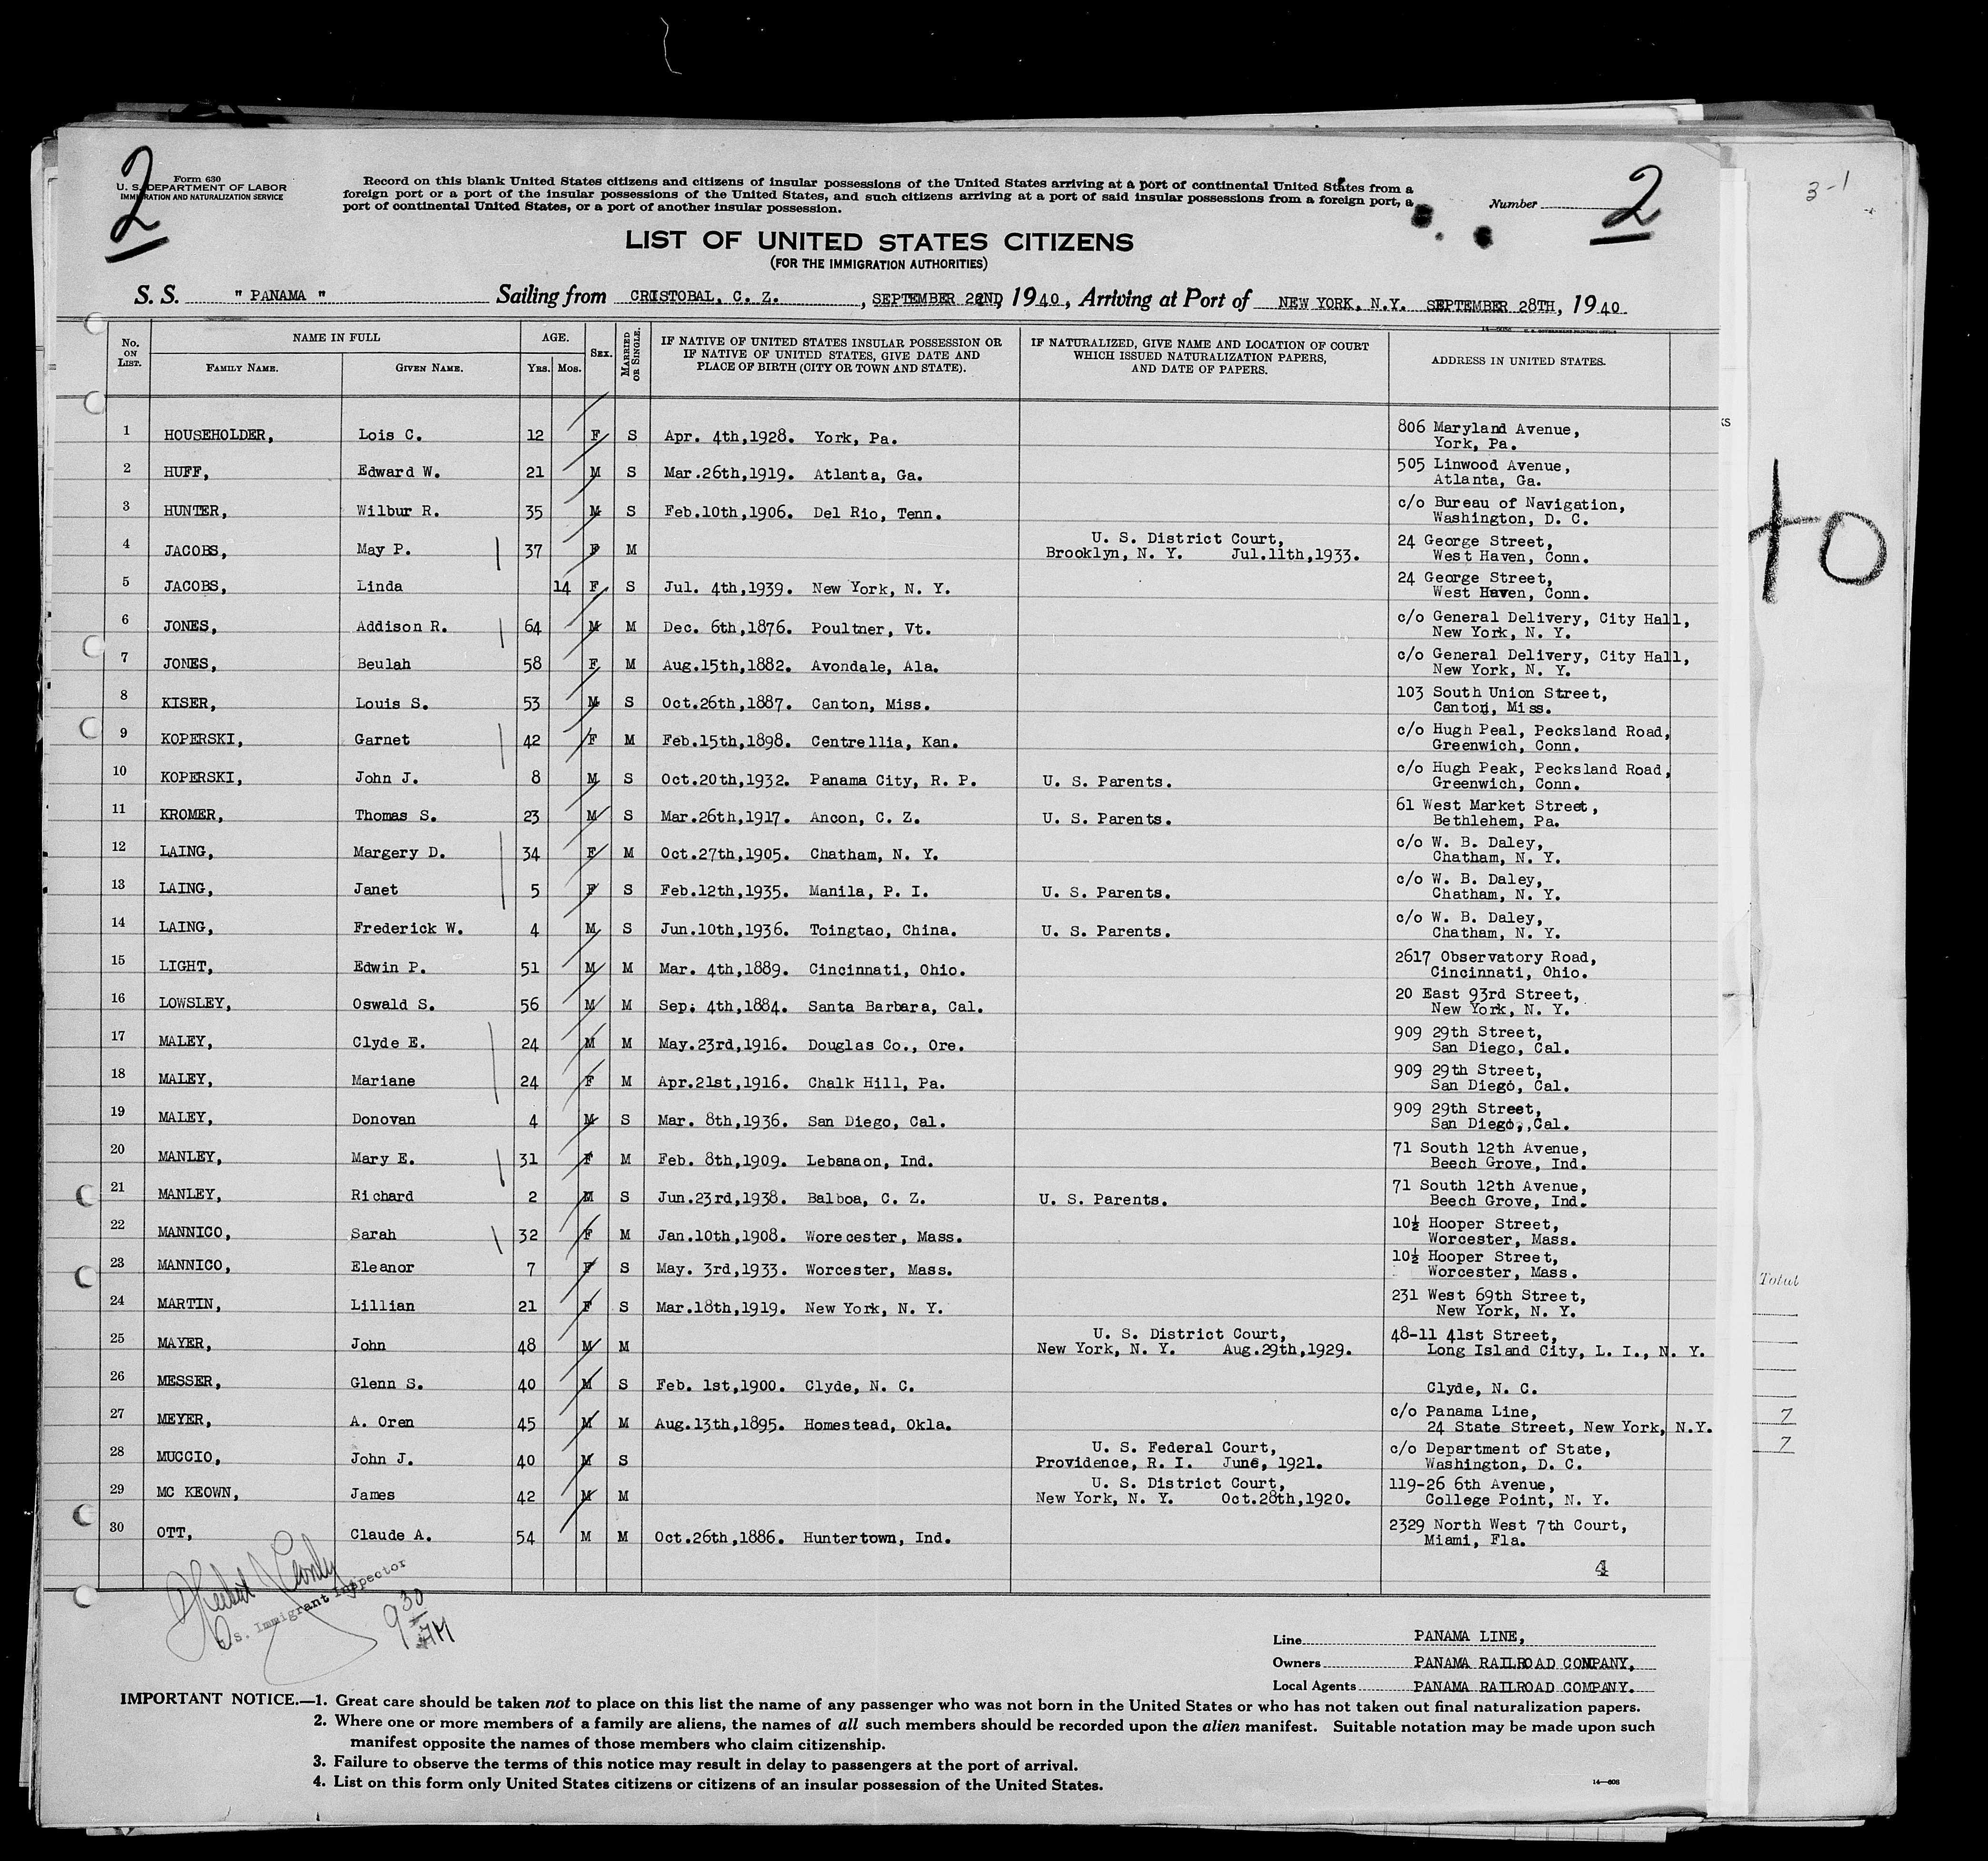 2
Form 630
U. S. DEPARTMENT OF LABOR
IMMIGRATION AND NATURALIZATION SERVICE
Record on this blank United States citizens and citizens of insular possessions of the United States arriving at a port of continental United States from a
foreign port or a port of the insular possessions of the United States, and such citizens arriving at a port of said insular possessions from a foreign port, a
port of continental United States, or a port of another insular possession.
Number
2
3-1
LIST OF UNITED STATES CITIZENS
(FOR THE IMMIGRATION AUTHORITIES)
S. S. " PANAMA " Sailing from CRISTOBAL, C. Z. , SEPTEMBER 22ND, 1940, Arriving at Port of NEW YORK, N.Y. SEPTEMBER 28TH, 1940
No. ON LIST. NAME IN FULL FAMILY NAME. GIVEN NAME. AGE. YRS. MOS. SEX. MARRIED OR SINGLE. IF NATIVE OF UNITED STATES INSULAR POSSESSION OR IF NATIVE OF UNITED STATES, GIVE DATE AND PLACE OF BIRTH (CITY OR TOWN AND STATE). IF NATURALIZED, GIVE NAME AND LOCATION OF COURT WHICH ISSUED NATURALIZATION PAPERS, AND DATE OF PAPERS. ADDRESS IN UNITED STATES.
1 HOUSEHOLDER, Lois C. 12 F S Apr. 4th,1928. York, Pa. 806 Maryland Avenue,
York, Pa.
2 HUFF, Edward W. 21 M S Mar.26th,1919. Atlanta, Ga. 505 Linwood Avenue,
Atlanta, Ga.
3 HUNTER, Wilbur R. 35 M S Feb.10th,1906. Del Rio, Tenn. c/o Bureau of Navigation,
Washington, D. C.
4 JACOBS, May P. 37 F M U. S. District Court, 24 George Street,
Brooklyn, N. Y. Jul.11th,1933. West Haven, Conn.
5 JACOBS, Linda 14 F S Jul. 4th,1939. New York, N. Y. 24 George Street,
West Haven, Conn.
6 JONES, Addison R. 64 M M Dec. 6th,1876. Poultner, Vt. c/o General Delivery, City Hall,
New York, N. Y.
7 JONES, Beulah 58 F M Aug.15th,1882. Avondale, Ala. c/o General Delivery, City Hall,
New York, N. Y.
8 KISER, Louis S. 53 M S Oct.26th,1887. Canton, Miss. 103 South Union Street,
Canton, Miss.
9 KOPERSKI, Garnet 42 F M Feb.15th,1898. Centrellia, Kan. c/o Hugh Peal, Pecksland Road,
Greenwich, Conn.
10 KOPERSKI, John J. 8 M S Oct.20th,1932. Panama City, R. P. U. S. Parents. c/o Hugh Peak, Pecksland Road,
Greenwich, Conn.
11 KROMER, Thomas S. 23 M S Mar.26th,1917. Ancon, C. Z. U. S. Parents. 61 West Market Street,
Bethlehem, Pa.
12 LAING, Margery D. 34 F M Oct.27th,1905. Chatham, N. Y. c/o W. B. Daley,
Chatham, N. Y.
13 LAING, Janet 5 F S Feb.12th,1935. Manila, P. I. U. S. Parents. c/o W. B. Daley,
Chatham, N. Y.
14 LAING, Frederick W. 4 M S Jun.10th,1936. Toingtao, China. U. S. Parents. c/o W. B. Daley,
Chatham, N. Y.
15 LIGHT, Edwin P. 51 M M Mar. 4th,1889. Cincinnati, Ohio. 2617 Observatory Road,
Cincinnati, Ohio.
16 LOWSLEY, Oswald S. 56 M M Sep. 4th,1884. Santa Barbara, Cal. 20 East 93rd Street,
New York, N. Y.
17 MALEY, Clyde E. 24 M M May.23rd,1916. Douglas Co., Ore. 909 29th Street,
San Diego, Cal.
18 MALEY, Mariane 24 F M Apr.21st,1916. Chalk Hill, Pa. 909 29th Street,
San Diego, Cal.
19 MALEY, Donovan 4 M S Mar. 8th,1936. San Diego, Cal. 909 29th Street,
San Diego,,Cal.
20 MANLEY, Mary E. 31 F M Feb. 8th,1909. Lebanaon, Ind. 71 South 12th Avenue,
Beech Grove, Ind.
21 MANLEY, Richard 2 M S Jun.23rd,1938. Balboa, C. Z. U. S. Parents. 71 South 12th Avenue,
Beech Grove, Ind.
22 MANNICO, Sarah 32 F M Jan.10th,1908. Worecester, Mass. 10½ Hooper Street,
Worcester, Mass.
23 MANNICO, Eleanor 7 F S May. 3rd,1933. Worcester, Mass. 10½ Hooper Street,
Worcester, Mass.
24 MARTIN, Lillian 21 F S Mar.18th,1919. New York, N. Y. 231 West 69th Street,
New York, N. Y.
25 MAYER, John 48 M M U. S. District Court, 48-11 41st Street,
New York, N. Y. Aug.29th,1929. Long Island City, L. I., N. Y.
26 MESSER, Glenn S. 40 M S Feb. 1st,1900. Clyde, N. C. Clyde, N. C.
27 MEYER, A. Oren 45 M M Aug.13th,1895. Homestead, Okla. c/o Panama Line,
24 State Street, New York, N.Y.
28 MUCCIO, John J. 40 M S U. S. Federal Court, c/o Department of State,
Providence, R. I. June, 1921. Washington, D. C.
29 MC KEOWN, James 42 M M U. S. District Court, 119-26 6th Avenue,
New York, N. Y. Oct.28th,1920. College Point, N. Y.
30 OTT, Claude A. 54 M M Oct.26th,1886. Huntertown, Ind. 2329 North West 7th Court,
Miami, Fla.
4
Immigrant Inspector
9 30 AM
Line PANAMA LINE,
Owners PANAMA RAILROAD COMPANY,
Local Agents PANAMA RAILROAD COMPANY.
IMPORTANT NOTICE.—1. Great care should be taken not to place on this list the name of any passenger who was not born in the United States or who has not taken out final naturalization papers.
2. Where one or more members of a family are aliens, the names of all such members should be recorded upon the alien manifest. Suitable notation may be made upon such
manifest opposite the names of those members who claim citizenship.
3. Failure to observe the terms of this notice may result in delay to passengers at the port of arrival.
4. List on this form only United States citizens or citizens of an insular possession of the United States.
14—608
Total
7
7